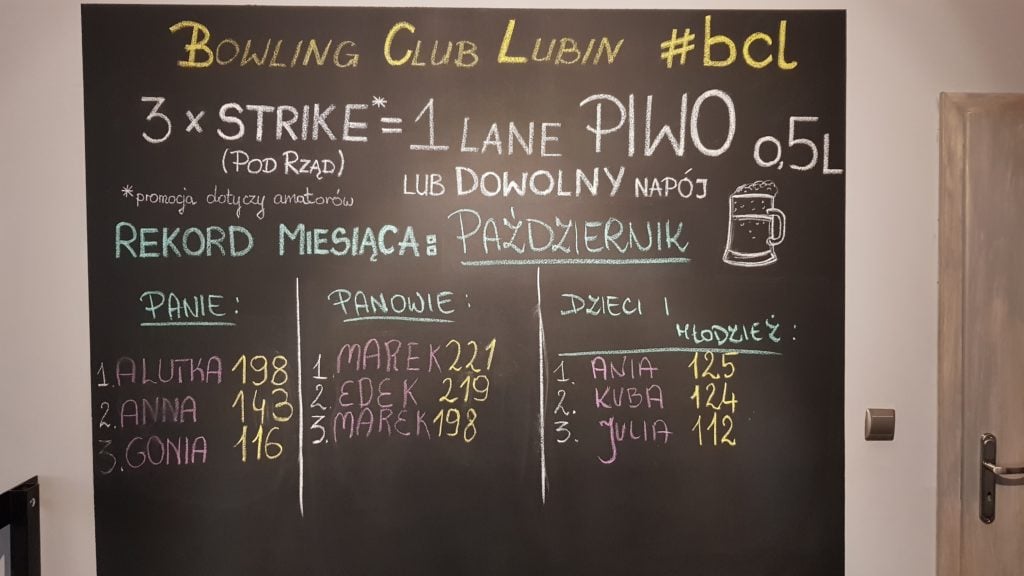 BOWLING CLUB LUBIN #bcl
3 x STRIKE* = 1 LANE PIWO 0,5L
(POD RZĄD)
LUB DOWOLNY NAPÓJ
*promocja dotyczy amatorów
REKORD MIESIĄCA: PAŹDZIERNIK
PANIE:
1. ALUTKA 198
2. ANNA 143
3. GONIA 116
PANOWIE:
1. MAREK 221
2. EDEK 219
3. MAREK 198
DZIECI I
MŁODZIEŻ:
1. ANIA 125
2. KUBA 124
3. JULIA 112